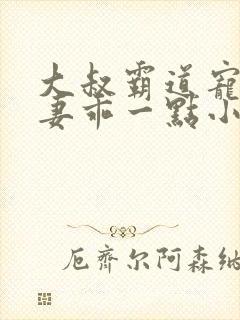 大叔霸道寵
妻乖一點小
厄齊尔阿森纳